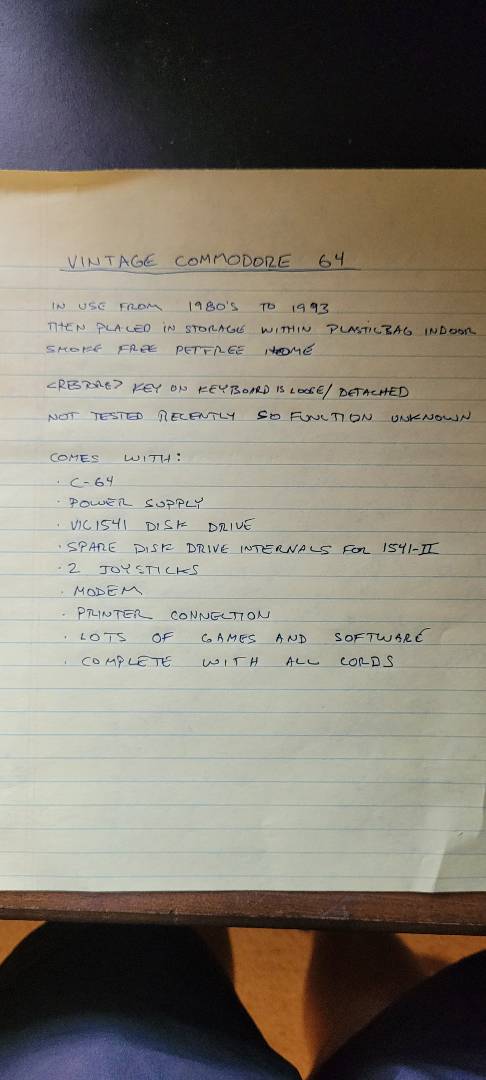 VINTAGE COMMODORE 64
IN USE FROM 1980'S TO 1993
THEN PLACED IN STORAGE WITHIN PLASTIC BAG INDOOR
SMOKE FREE PET FREE HOME
<RESTORE> KEY ON KEYBOARD IS LOOSE/DETACHED
NOT TESTED RECENTLY SO FUNCTION UNKNOWN
COMES WITH:
· C-64
· POWER SUPPLY
· VIC1541 DISK DRIVE
· SPARE DISK DRIVE INTERNALS FOR 1541-II
· 2 JOYSTICKS
· MODEM
· PRINTER CONNECTION
· LOTS OF GAMES AND SOFTWARE
· COMPLETE WITH ALL CORDS